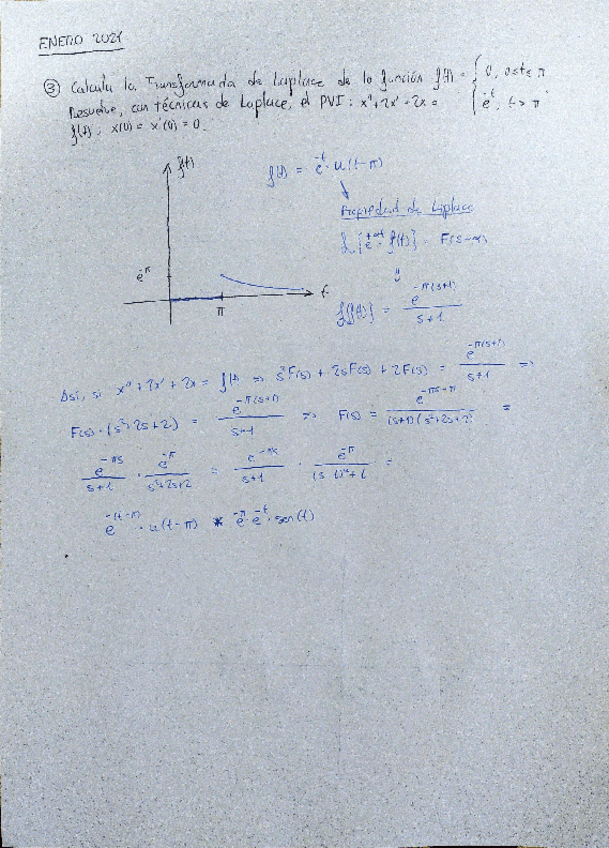 ENERO 2021
③ Calcula la Transformada de Laplace de la función f(t) = { 0, 0≤t≤π
Resuelve, con técnicas de Laplace, el PVI: x''+2x'+2x = { e^-t, t>π
f(t); x(0) = x'(0) = 0.
f(t)
f(t) = e^-t · u(t-π)
Propiedad de Laplace
L[e^+αt · f(t)] = F(s-α)
e^-π
t
π
L[f(t)] = e^-π(s+1) / s+1
Así, si x''+2x'+2x = f(t) => s²F(s) + 2sF(s) + 2F(s) = e^-π(s+1) / s+1 =>
F(s)·(s²+2s+2) = e^-π(s+1) / s+1 => F(s) = e^-πs-π / (s+1)(s²+2s+2) =
e^-πs / s+1 · e^-π / s²+2s+2 = e^-πs / s+1 · e^-π / (s+1)²+1 =
e^-(t-π) · u(t-π) * e^-π · e^-t · sen(t)